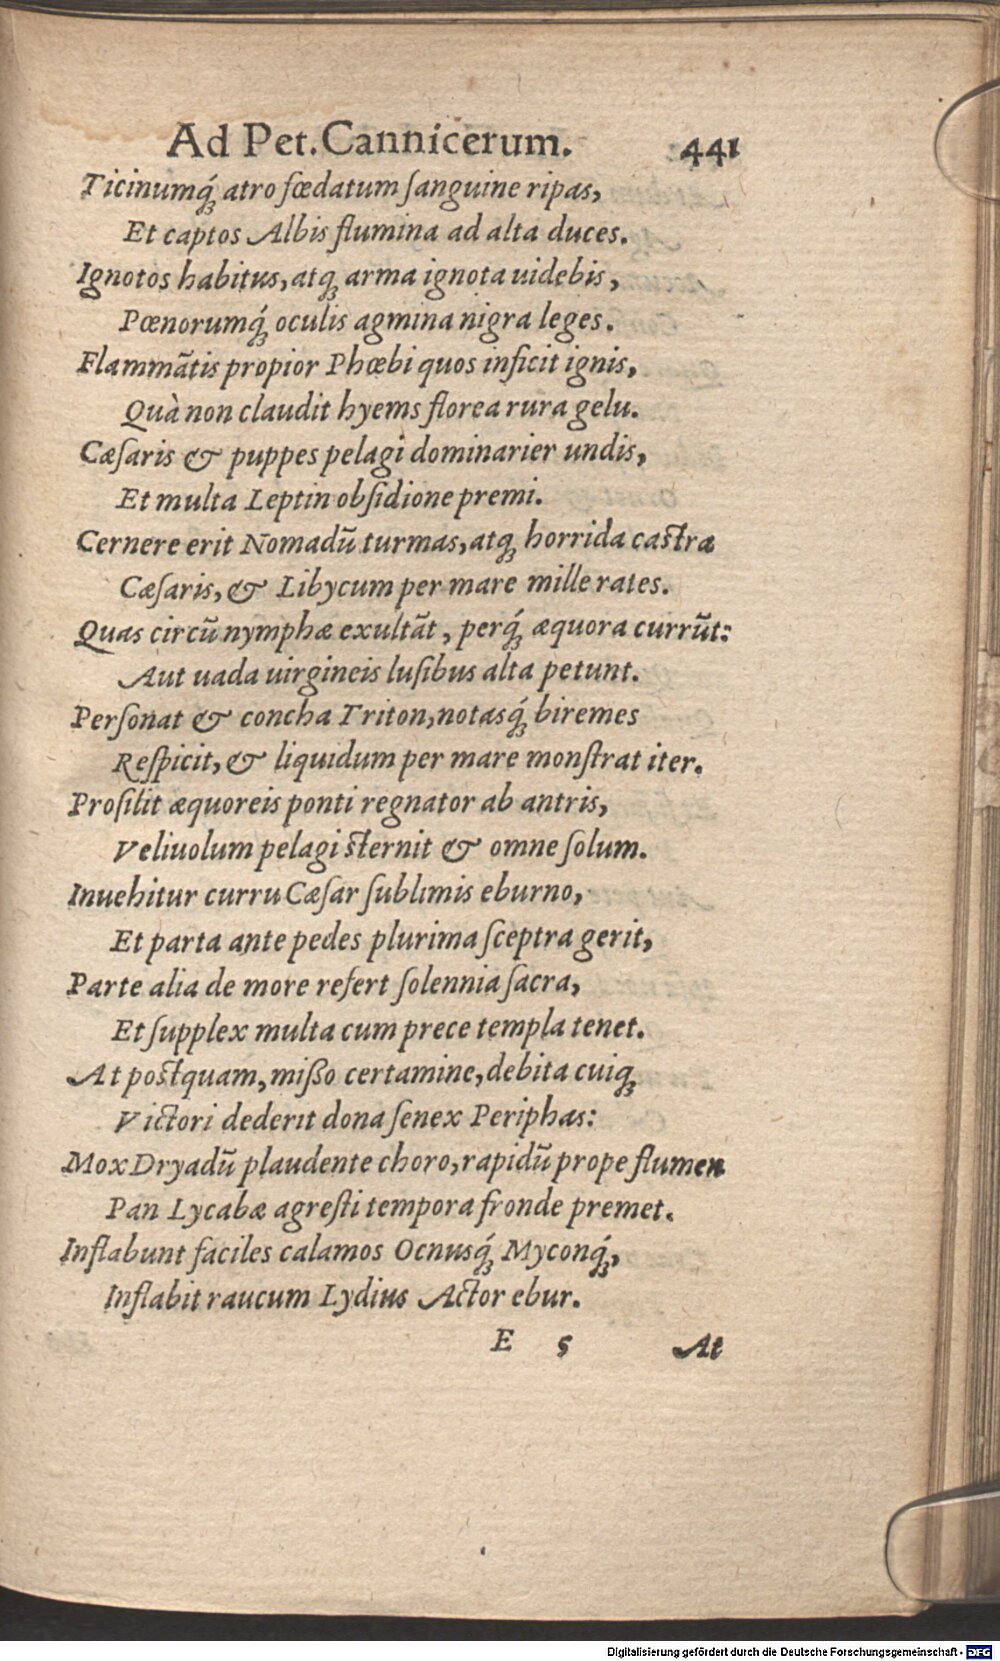 Ad Pet. Cannicerum. 441
Ticinumq́ꝫ atro fœdatum ſanguine ripas,
Et captos Albis flumina ad alta duces.
Ignotos habitus, atqꝫ arma ignota uidebis,
Pœnorumq́ꝫ oculis agmina nigra leges.
Flammātis propior Phœbi quos inficit ignis,
Quà non claudit hyems florea rura gelu.
Cæſaris & puppes pelagi dominarier undis,
Et multa Leptin obſidione premi.
Cernere erit Nomadū turmas, atqꝫ horrida caſtra
Cæſaris, & Libycum per mare mille rates.
Quas circū nymphæ exultāt, perq́ꝫ æquora currūt:
Aut uada uirgineis luſibus alta petunt.
Perſonat & concha Triton, notasq́ꝫ biremes
Reſpicit, & liquidum per mare monſtrat iter.
Proſilit æquoreis ponti regnator ab antris,
Veliuolum pelagi ſternit & omne ſolum.
Inuehitur curru Cæſar ſublimis eburno,
Et parta ante pedes plurima ſceptra gerit,
Parte alia de more refert ſolennia ſacra,
Et ſupplex multa cum prece templa tenet.
At poſtquam, miſſo certamine, debita cuiqꝫ
Victori dederit dona ſenex Periphas:
Mox Dryadū plaudente choro, rapidū prope flumen
Pan Lycabæ agreſti tempora fronde premet.
Inflabunt faciles calamos Ocnusq́ꝫ Myconq́ꝫ,
Inflabit raucum Lydius Actor ebur.
E 5 At
Digitalisierung gefördert durch die Deutsche Forschungsgemeinschaft - DFG